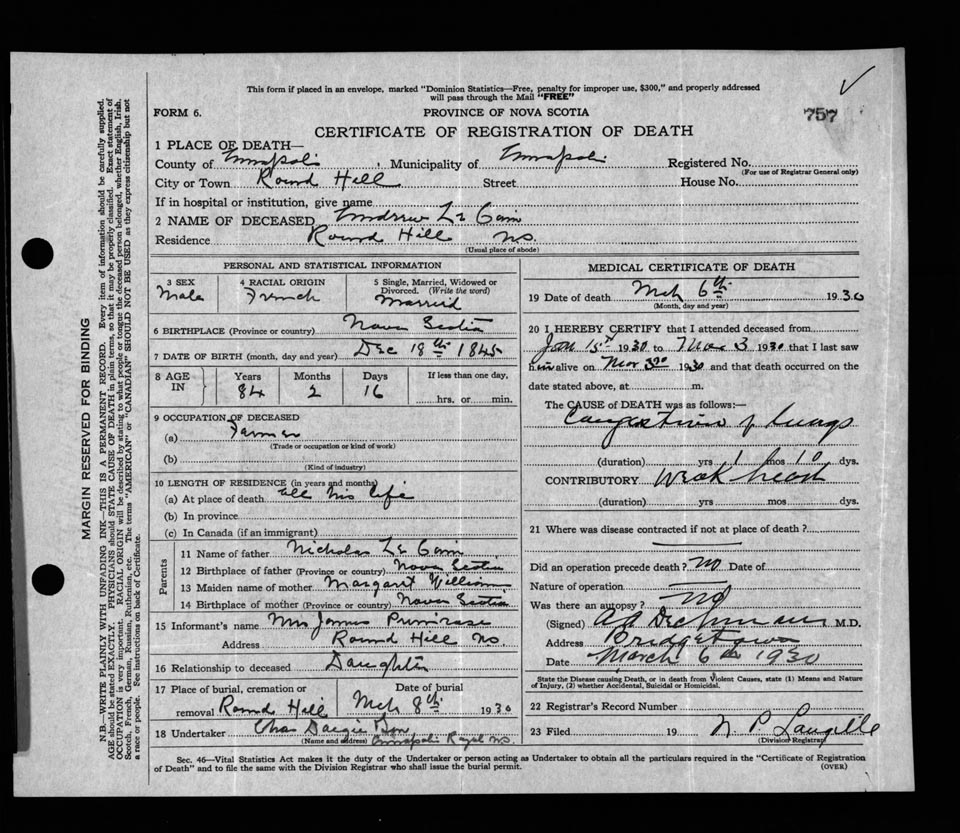 This form if placed in an envelope, marked "Dominion Statistics—Free, penalty for improper use, $300," and properly addressed
will pass through the Mail "FREE"
757
FORM 6. PROVINCE OF NOVA SCOTIA
CERTIFICATE OF REGISTRATION OF DEATH
1 PLACE OF DEATH—
County of Annapolis, Municipality of Annapolis Registered No.
(For use of Registrar General only)
City or Town Round Hill Street House No.
If in hospital or institution, give name
2 NAME OF DECEASED Andrew Le Cain
Residence Round Hill N.S.
(Usual place of abode)
PERSONAL AND STATISTICAL INFORMATION
3 SEX Male
4 RACIAL ORIGIN French
5 Single, Married, Widowed or Divorced. (Write the word) Married
6 BIRTHPLACE (Province or country) Nova Scotia
7 DATE OF BIRTH (month, day and year) Dec 18th 1845
8 AGE IN Years 84 Months 2 Days 16 If less than one day, hrs. or min.
9 OCCUPATION OF DECEASED
(a) Farmer
(Trade or occupation or kind of work)
(b)
(Kind of industry)
10 LENGTH OF RESIDENCE (in years and months)
(a) At place of death all his life
(b) In province
(c) In Canada (if an immigrant)
Parents
11 Name of father Nicholas Le Cain
12 Birthplace of father (Province or country) Nova Scotia
13 Maiden name of mother Margaret Williams
14 Birthplace of mother (Province or country) Nova Scotia
15 Informant's name Mrs James Primrose
Address Round Hill N.S.
16 Relationship to deceased Daughter
17 Place of burial, cremation or removal Round Hill
Date of burial Mch 8th 1930
18 Undertaker Chas Son
(Name and address) Annapolis Royal N.S.
MEDICAL CERTIFICATE OF DEATH
19 Date of death Mch 6th 1930
(Month, day and year)
20 I HEREBY CERTIFY that I attended deceased from
Jan 15 1930 to Mar 3 1930 that I last saw
him alive on Mar 3rd 1930 and that death occurred on the
date stated above, at m.
The CAUSE of DEATH was as follows:—
Congestion of Lungs
(duration) yrs 1 mos 10 dys.
CONTRIBUTORY Weak heart
(duration) yrs mos dys.
21 Where was disease contracted if not at place of death?
Did an operation precede death? no Date of
Nature of operation
Was there an autopsy? no
(Signed) M.D.
Address Bridgetown
Date March 6th 1930
State the Disease causing Death, or in death from Violent Causes, state (1) Means and Nature
of Injury, (2) whether Accidental, Suicidal or Homicidal.
22 Registrar's Record Number
23 Filed 19 N. P. Langille
(Division Registrar)
Sec. 46—Vital Statistics Act makes it the duty of the Undertaker or person acting as Undertaker to obtain all the particulars required in the "Certificate of Registration
of Death" and to file the same with the Division Registrar who shall issue the burial permit.
(OVER)
MARGIN RESERVED FOR BINDING
N.B.—WRITE PLAINLY WITH UNFADING INK—THIS IS A PERMANENT RECORD. Every item of information should be carefully supplied.
AGE should be stated EXACTLY. PHYSICIANS should STATE CAUSE OF DEATH in plain terms, so that it may be properly classified. Exact statement of
OCCUPATION is very important. RACIAL ORIGIN will be described by stating to what people or tongue the deceased person belonged, whether English, Irish,
Scotch, French, German, Russian, Ruthenian, etc. The terms "AMERICAN" or "CANADIAN" SHOULD NOT BE USED as they express citizenship but not
a race or people. See instructions on back of Certificate.